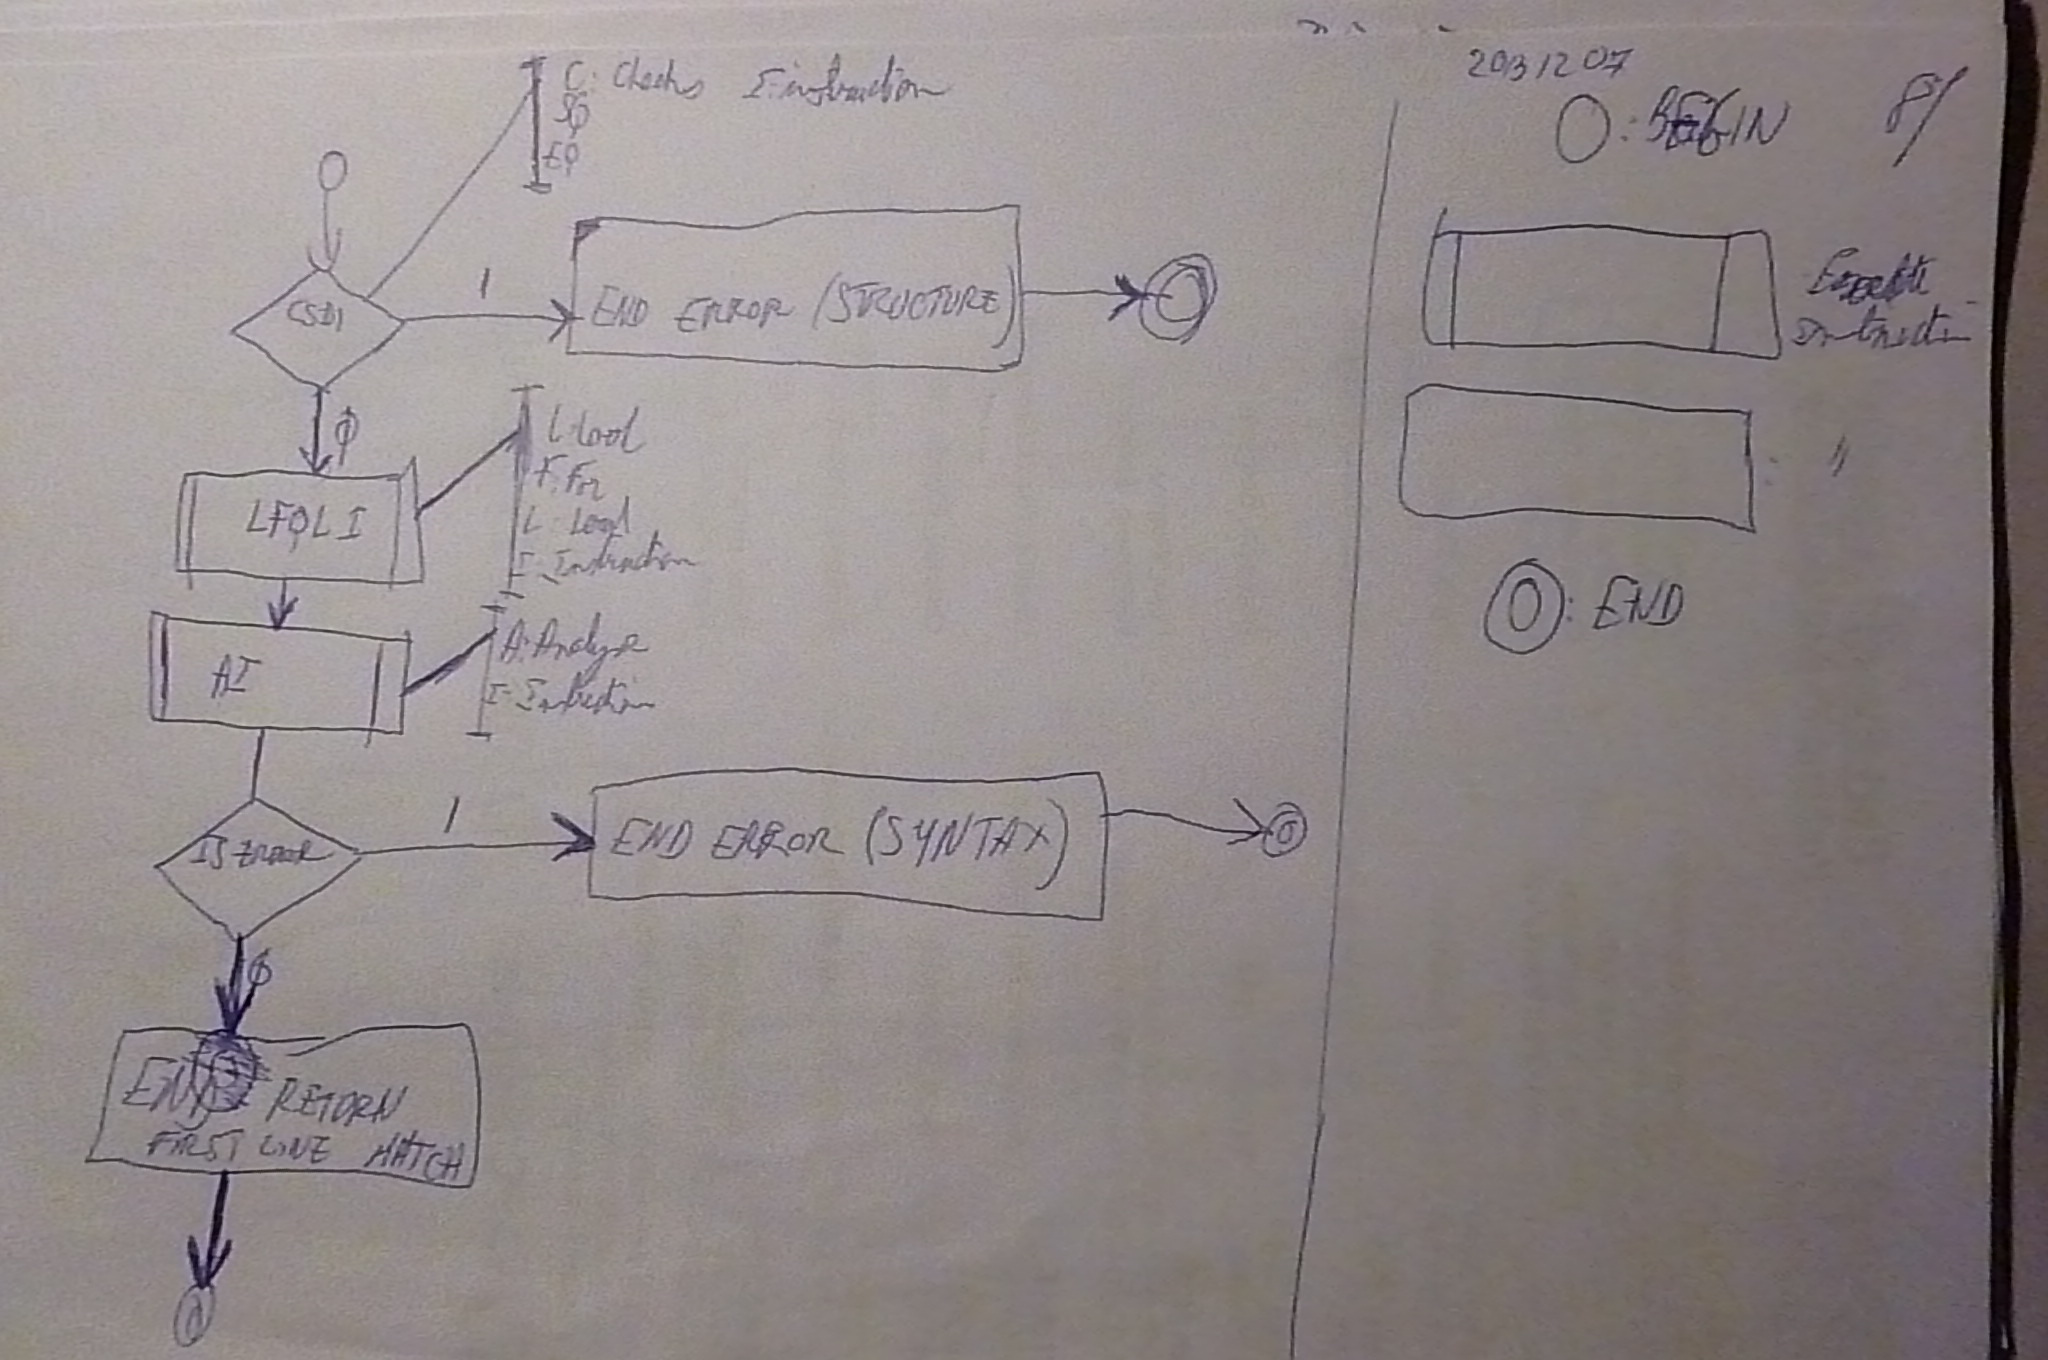 C: Checks I: instruction
EQ
1
END ERROR (STRUCTURE)
φ
L: Load
F: For
L: Load
I: Instruction
LFQLI
A: Analyse
I: Instruction
AI
IS ERROR
1
END ERROR (SYNTAX)
φ
END RETURN
FIRST LINE MATCH
20131207
: BEGIN
Execute
Instruction
: "
: END